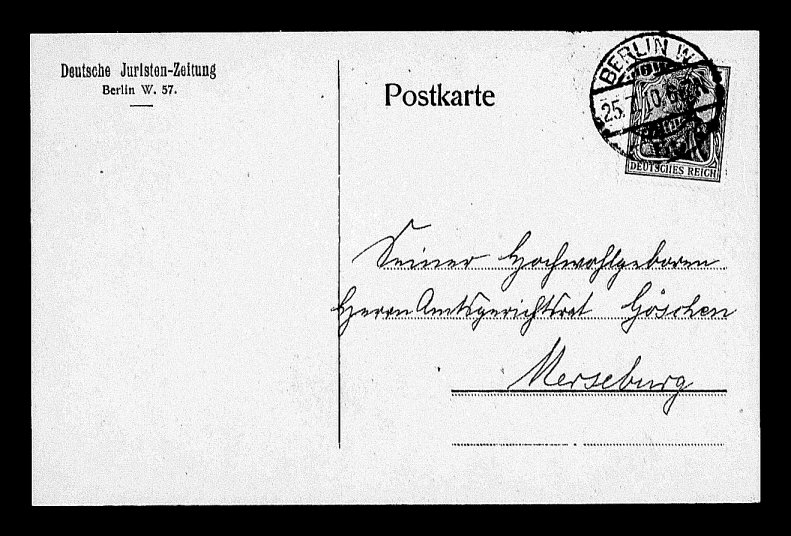 Deutsche Juristen-Zeitung
Berlin W. 57.
Postkarte
BERLIN W.
25.7.10.6
DEUTSCHES REICH
Seiner Hochwohlgeboren
Herrn Amtsgerichtsrat Göschen
Merseburg